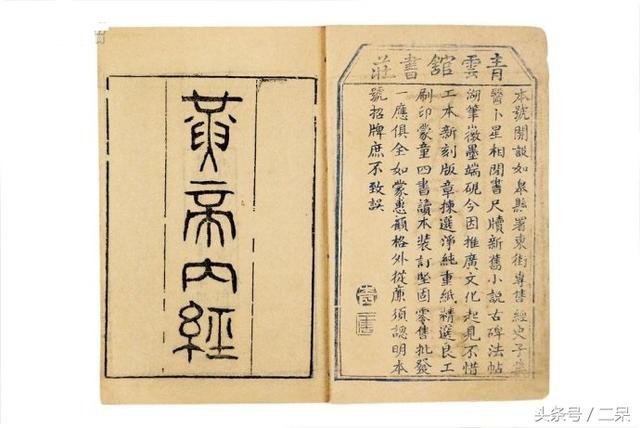 青雲舘書莊
本號開設如皋縣署東街專售經史子集
醫卜星相閒書尺牘新舊小說古碑法帖
湖筆徽墨端硯今因推廣文化起見不惜
工本新刻版章揀選淨純重紙精選良工
刷印蒙童四書讀本裝訂堅固零售批發
一應俱全如蒙惠顧格外從廉須認明本
號招牌庶不致誤
黃帝內經
头条号 / 二呆